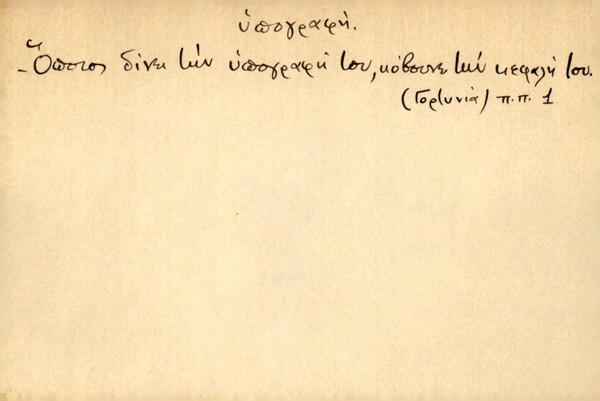 ὑπογραφή.
- Ὅποιος δίνει τὴν ὑπογραφή του, κόβουνε τὴν κεφαλή του.
(Γορτυνία) π.π. 1